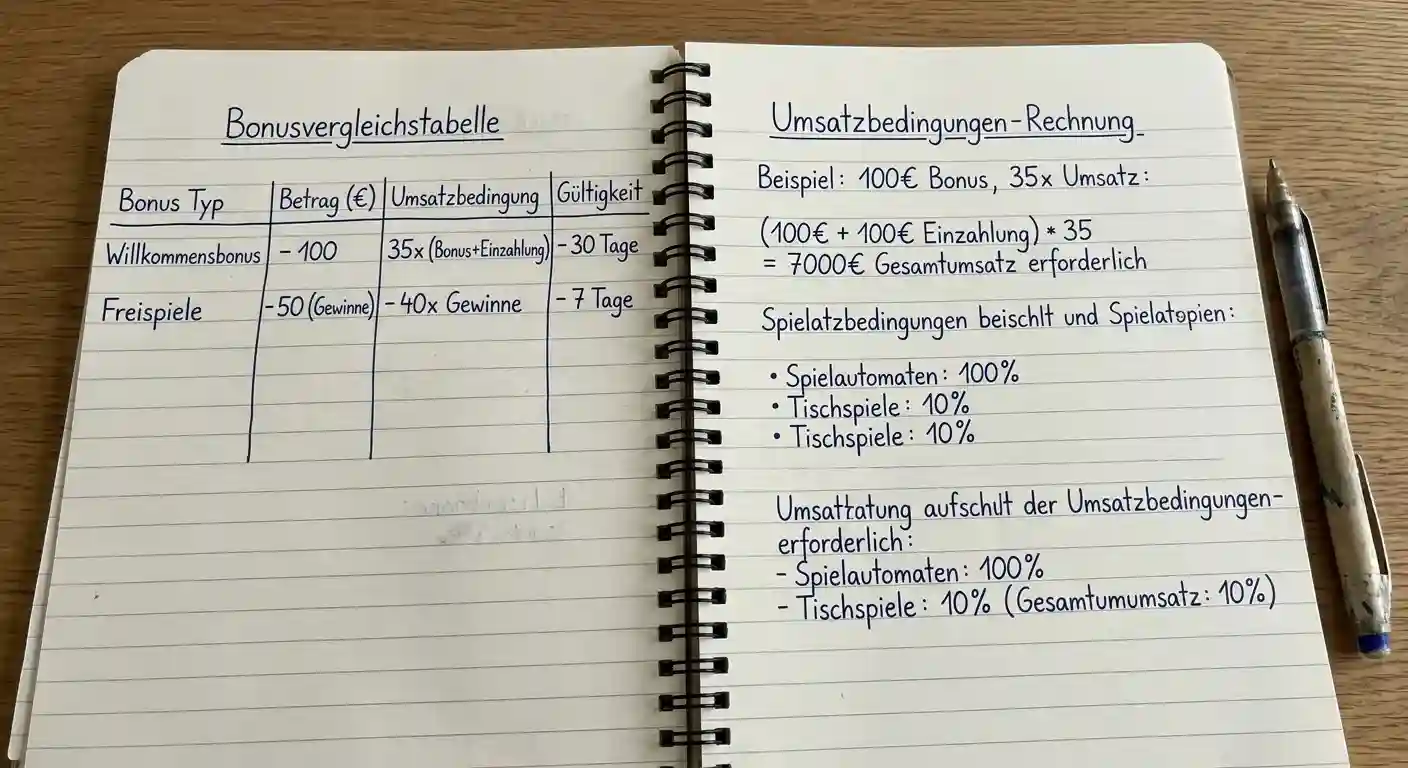 Bonusvergleichstabelle
Bonus Typ Betrag (€) Umsatzbedingung Gültigkeit
Willkommensbonus - 100 35x (Bonus+Einzahlung) - 30 Tage
Freispiele - 50 (Gewinne) - 40x Gewinne - 7 Tage
Umsatzbedingungen-Rechnung
Beispiel: 100€ Bonus, 35x Umsatz:
(100€ + 100€ Einzahlung) * 35
= 7000€ Gesamtumsatz erforderlich
Spielatzbedingungen beischlt und Spielatopien:
• Spielautomaten: 100%
• Tischspiele: 10%
• Tischspiele: 10%
Umsattatung aufschut der Umsatzbedingungen-
erforderlich:
- Spielautomaten: 100%
- Tischspiele: 10% (Gesamtumumsatz: 10%)